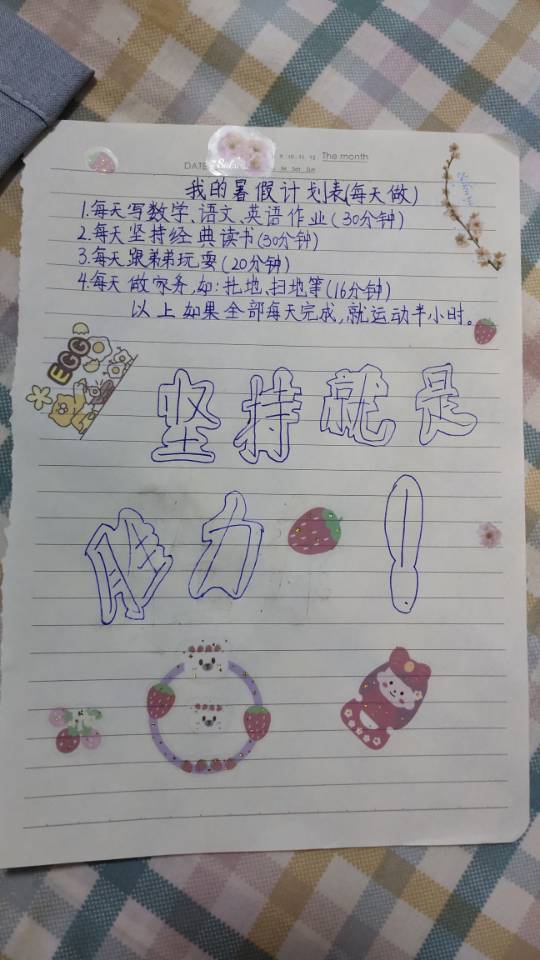 DATE
9. 10. 11. 12. The month
我的暑假计划表(每天做)
1.每天写数学、语文、英语作业(30分钟)
2.每天坚持经典读书(30分钟)
3.每天跟弟弟玩耍(20分钟)
4.每天做家务,如:扎地、扫地等(16分钟)
以上如果全部每天完成,就运动半小时。
EGG
坚持就是
胜力!